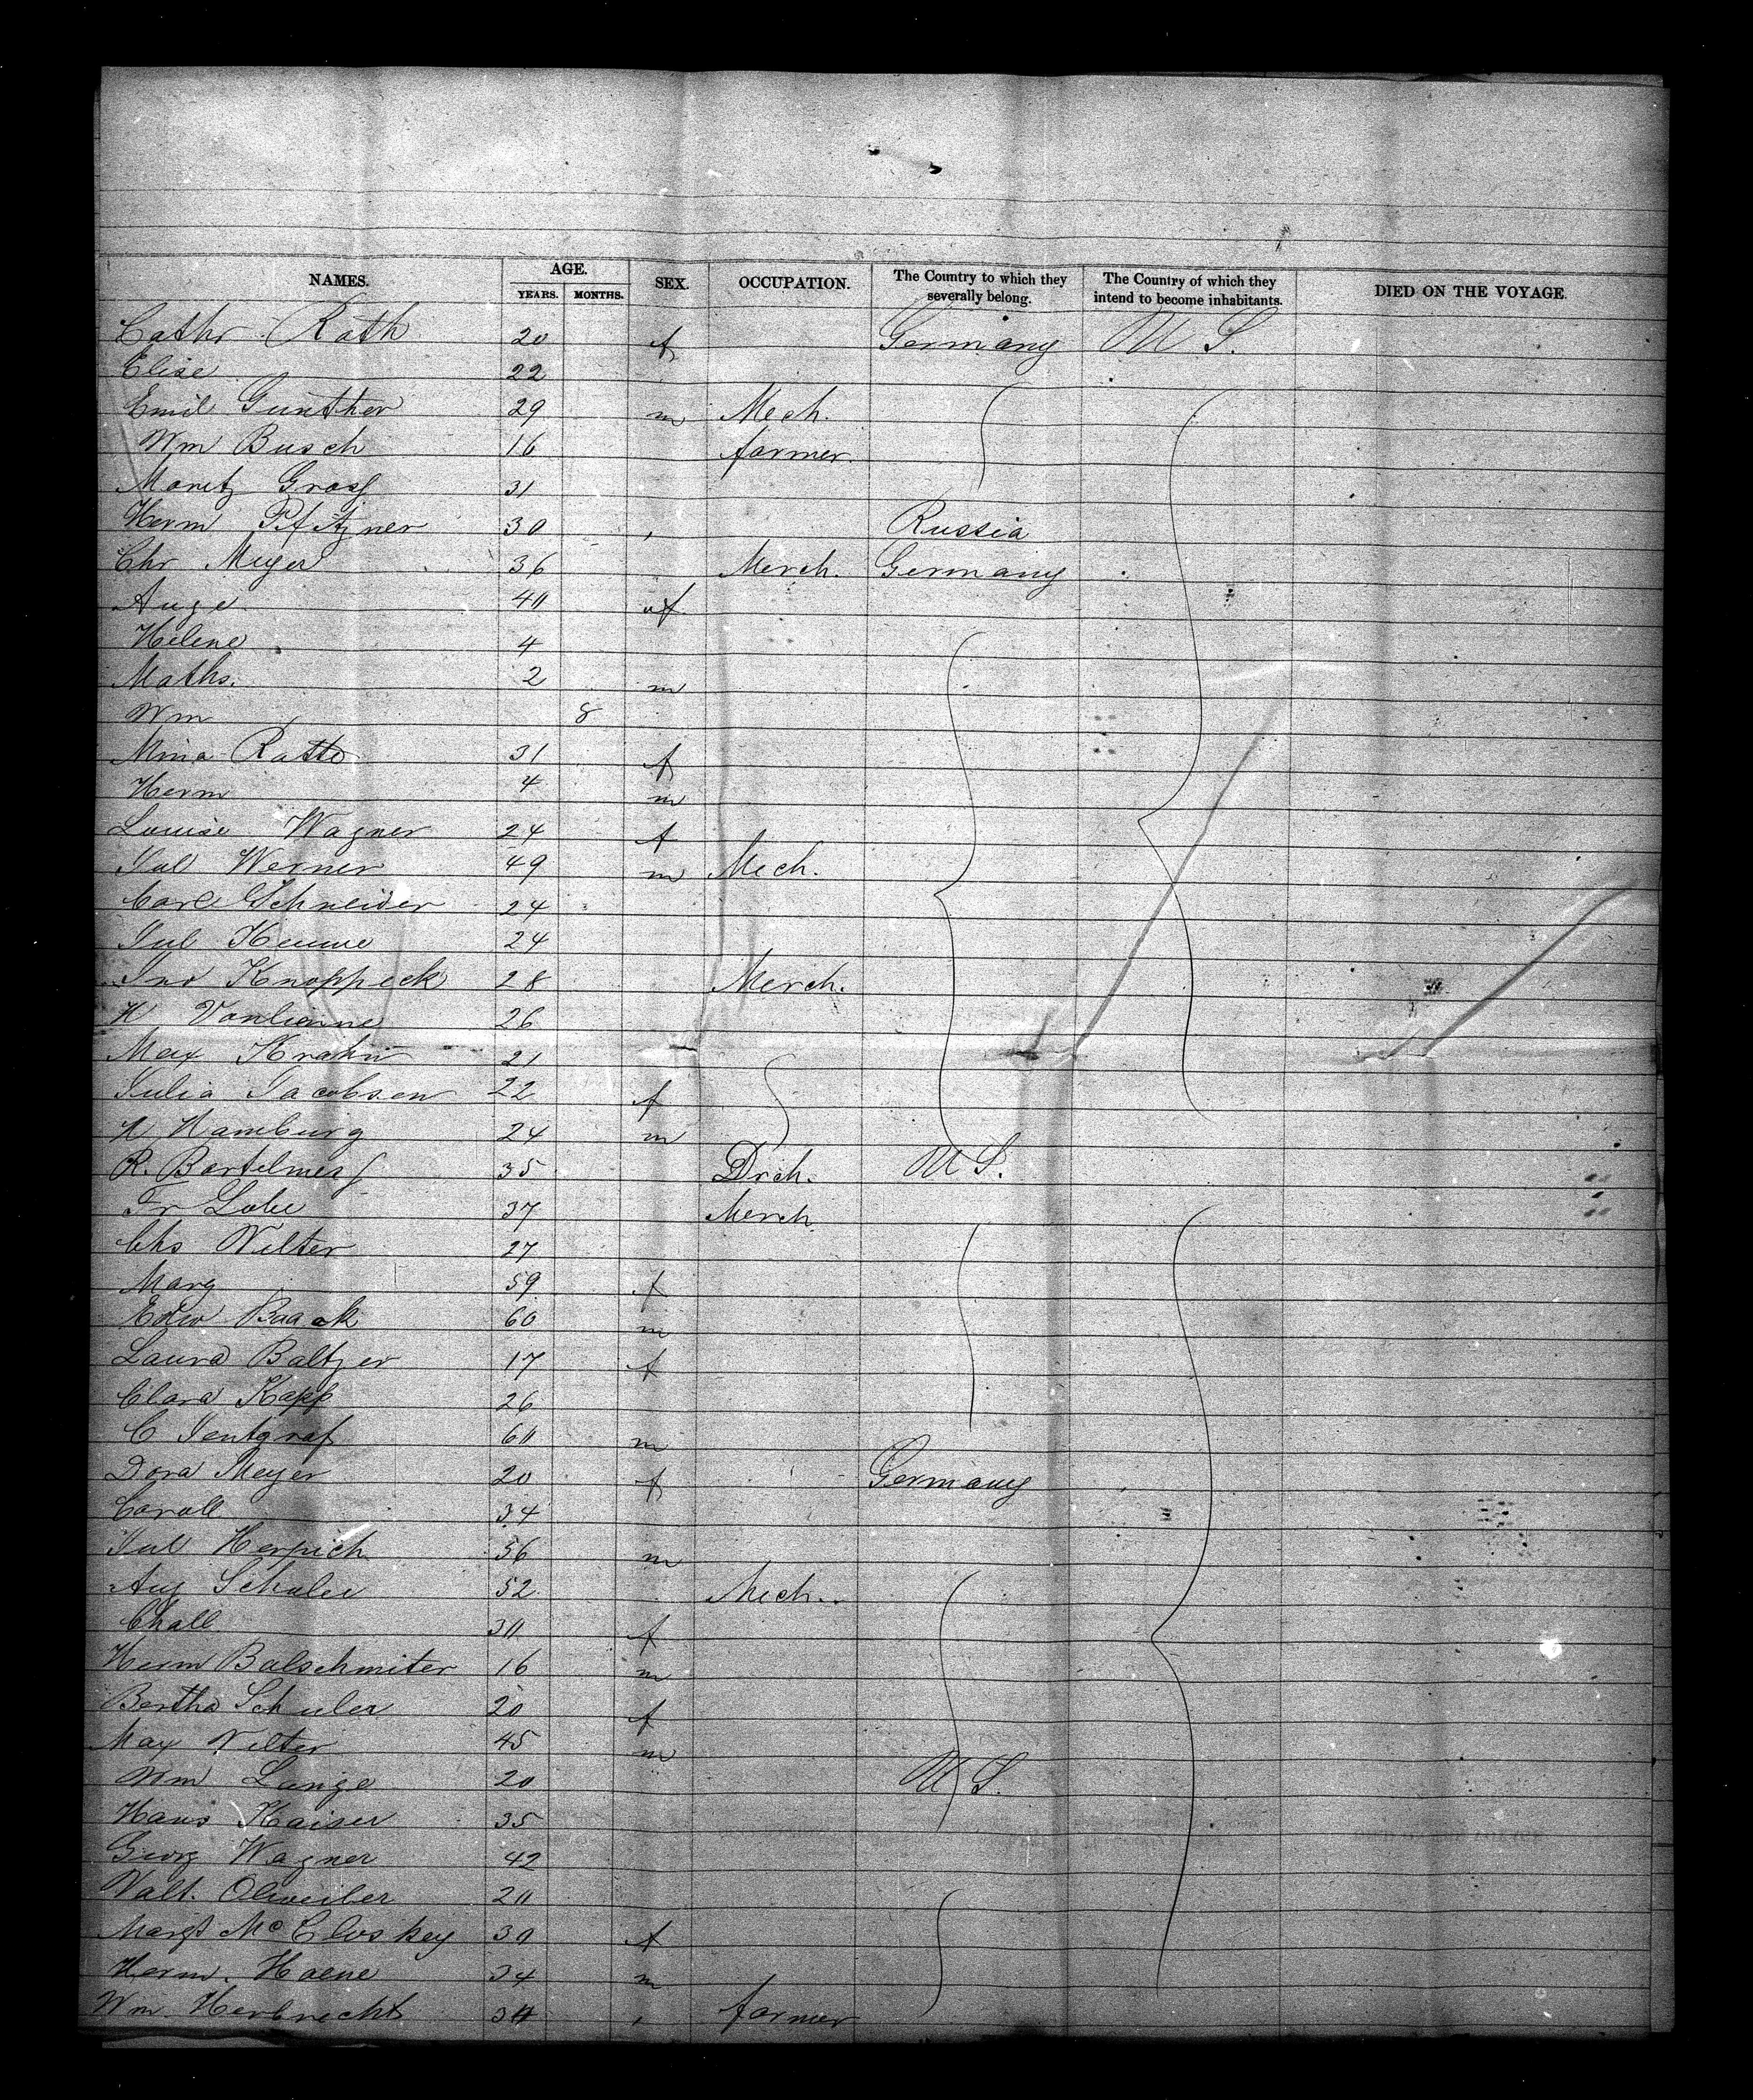 NAMES. AGE. SEX. OCCUPATION. The Country to which they severally belong. The Country of which they intend to become inhabitants. DIED ON THE VOYAGE.
YEARS. MONTHS.
Cathr Rath 20 f Germany U S.
Elise 22
Emil Gunther 29 m Mech.
Wm Busch 16 farmer.
Moritz Grosz 31
Herm Pfitzner 30 Russia
Chr Meyer 36 Merch. Germany
Auge 40 f
Helene 4
Maths. 2 m
Wm 8
Mina Ratte 31 f
Herm 4 m
Louise Wagner 24 f
Jul Werner 49 m Mech.
Carl Schneider 24
Jul Henne 24
Ind Knoppeck 28 Merch.
H 26
Max Krahn 21
Julia Jacobsen 22 f
H Hamburg 24 m
R. Bartelmess 35 Drch. U S.
Fr Lobe 37 Merch
Chs Vilter 27
Marg 59 f
Edw Baack 60 m
Laura Baltzer 17 f
Clara Kapp 26
C Jentgraf 60 m
Dora Meyer 20 f Germany
Caroll 34
Jul Herpich 56 m
Aug Schuler 52 Mech.
Chall 30 f
Herm Balschmiter 16 m
Bertha Schuler 20 f
Max Vilter 45 m
Wm Lange 20 U S.
Hans Kaiser 35
Georg Wagner 42
Valt. Olweiler 20
Margt McCloskey 30 f
Herm. Haene 34 m
Wm Herbrecht 30 farmer